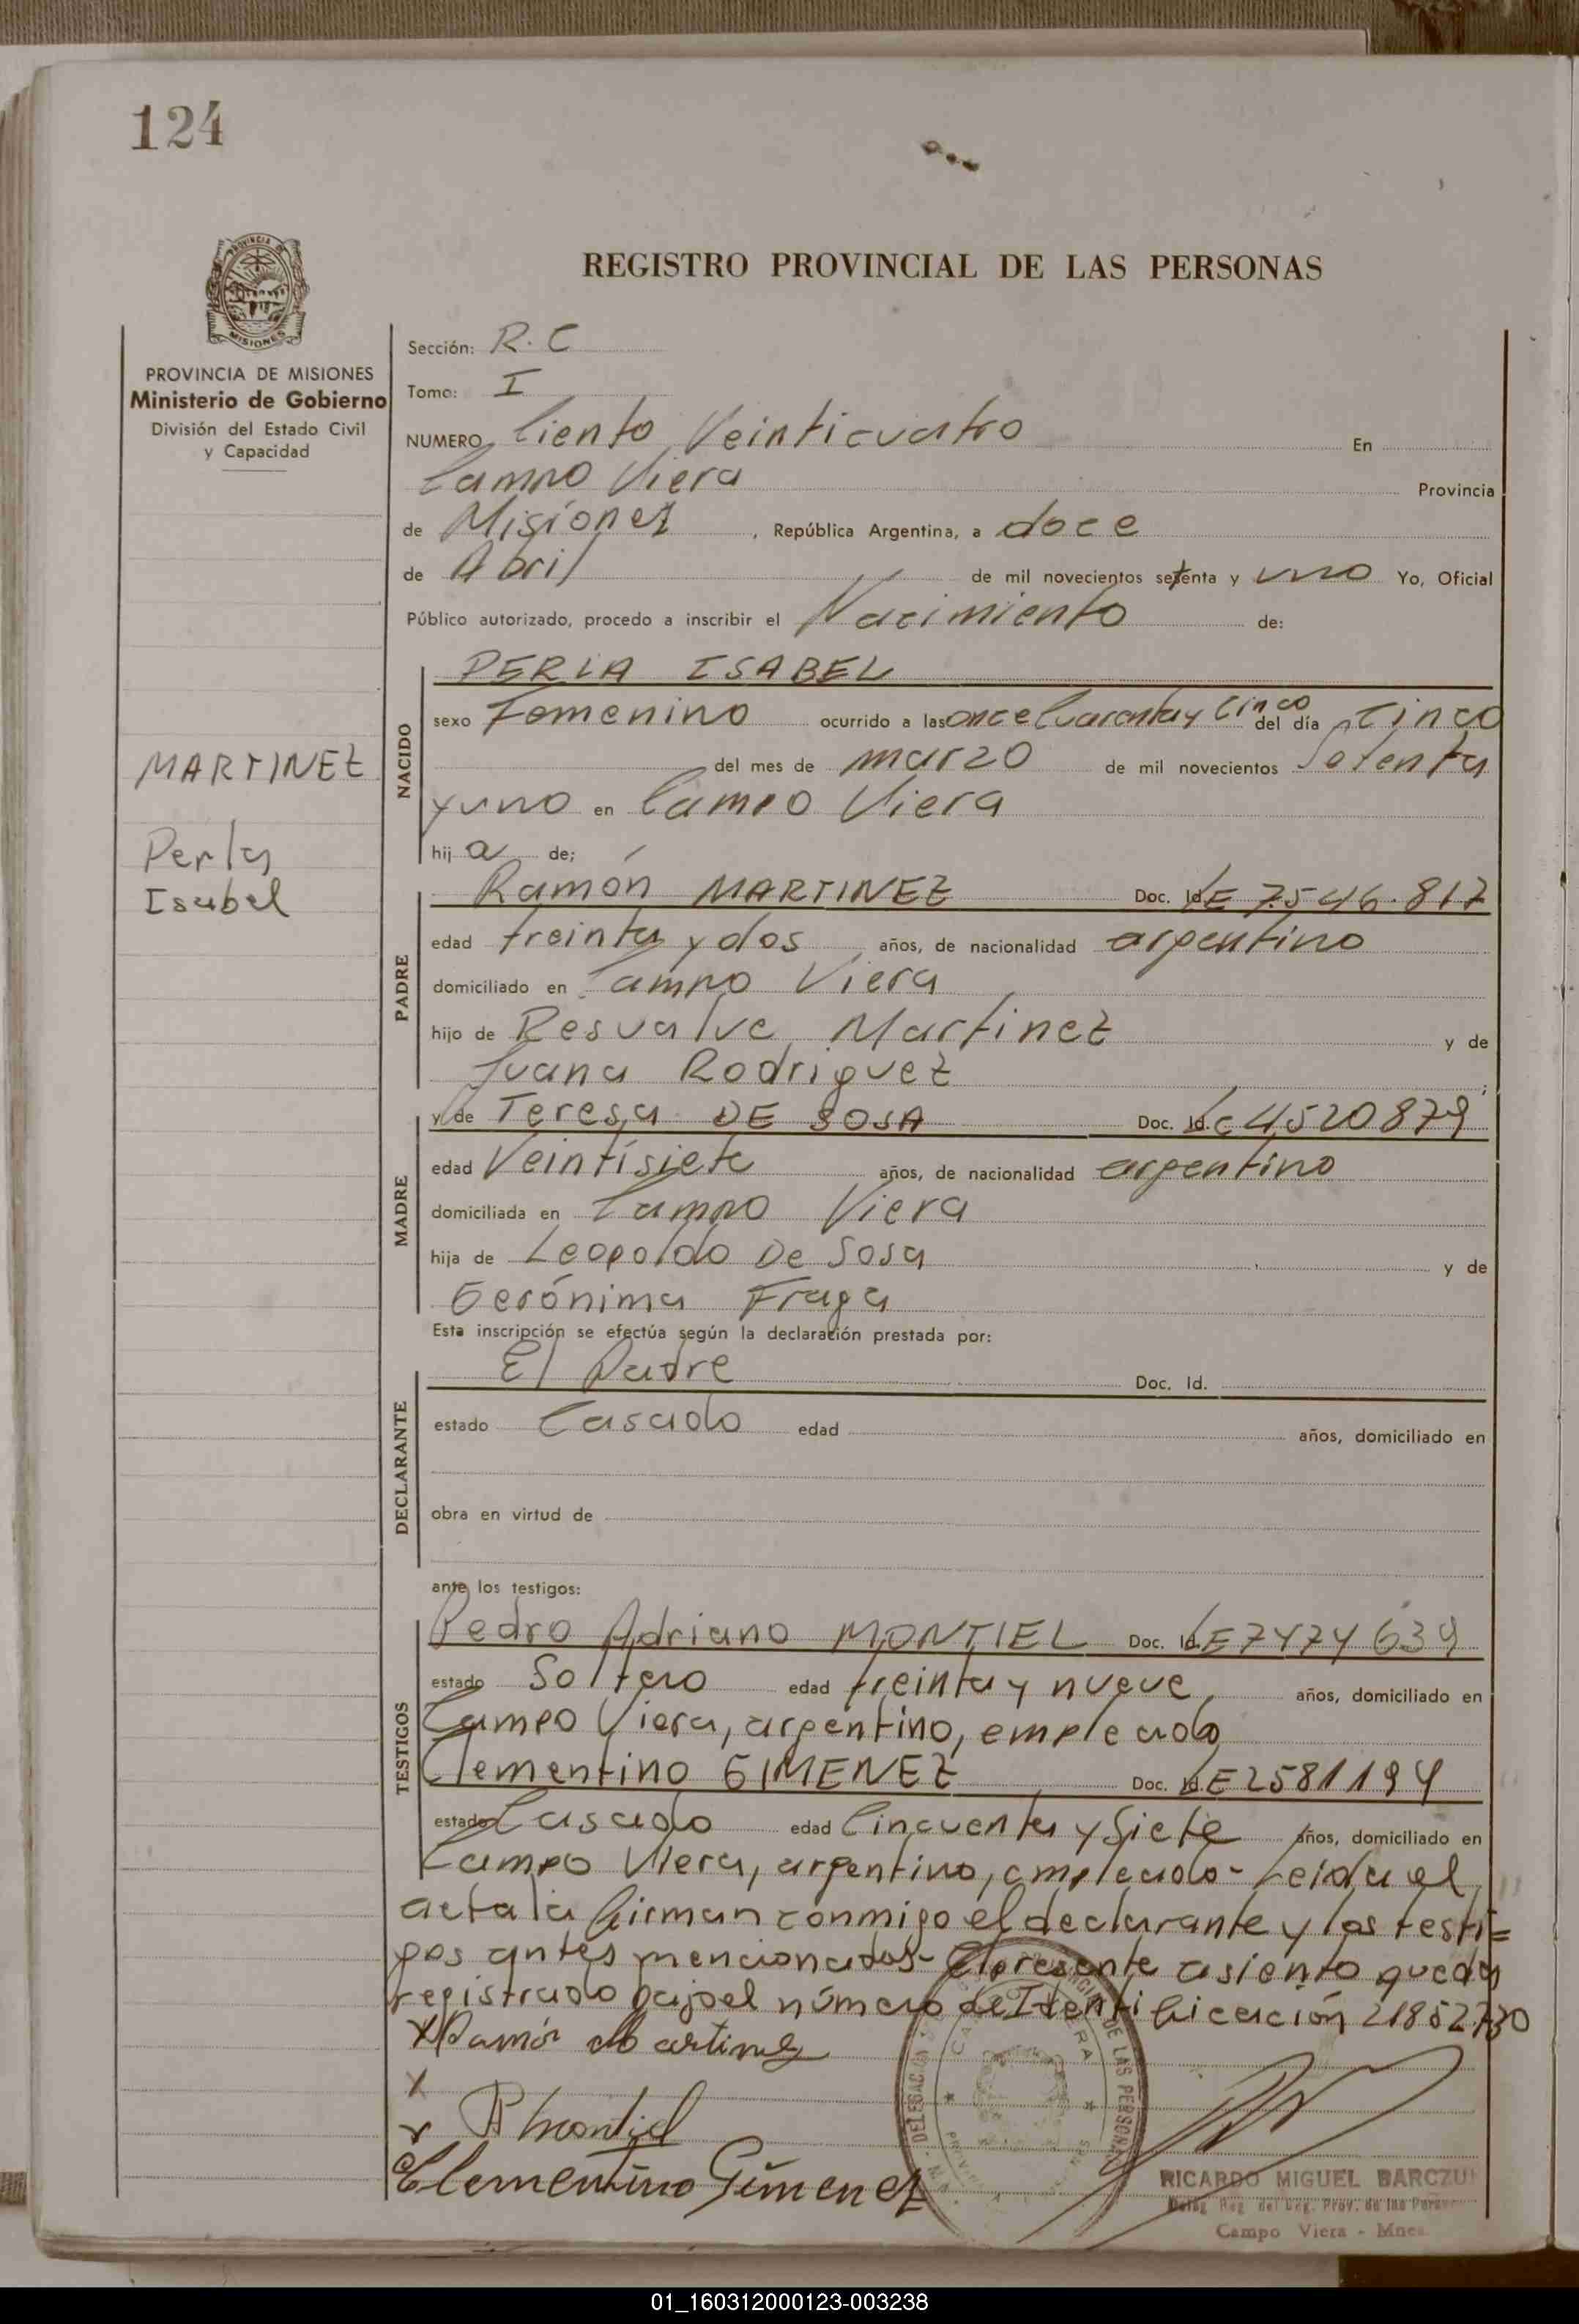 124
PROVINCIA DE MISIONES
MISIONES
PROVINCIA DE MISIONES
Ministerio de Gobierno
División del Estado Civil
y Capacidad
MARTINEZ
Perla
Isabel
REGISTRO PROVINCIAL DE LAS PERSONAS
Sección: R. C
Tomo: I
NUMERO Ciento Veinticuatro En
Campo Viera Provincia
de Misiones, República Argentina, a doce
de Abril de mil novecientos setenta y uno Yo, Oficial
Público autorizado, procedo a inscribir el Nacimiento de:
NACIDO
PERLA ISABEL
sexo Femenino ocurrido a las once Cuarenta y Cinco del día cinco
del mes de marzo de mil novecientos Setenta
y uno en Campo Viera
hij a de;
PADRE
Ramón MARTINEZ Doc. Id. LE 7.546.817
edad treinta y dos años, de nacionalidad argentino
domiciliado en Campo Viera
hijo de Resualve Martinez y de
Juana Rodriguez;
MADRE
y de Teresa DE SOSA Doc. Id. Lc 4520879
edad Veintisiete años, de nacionalidad argentino
domiciliada en Campo Viera
hija de Leopoldo De Sosa y de
Gerónima Fraga
Esta inscripción se efectúa según la declaración prestada por:
DECLARANTE
El Padre Doc. Id.
estado Casado edad años, domiciliado en
obra en virtud de
ante los testigos:
TESTIGOS
Pedro Adriano MONTIEL Doc. Id. LE 7474639
estado Soltero edad treinta y nueve, años, domiciliado en
Campo Viera, argentino, empleado
Clementino GIMENEZ Doc. Id. LE 2581194
estado Casado edad Cincuenta y Siete años, domiciliado en
Campo Viera, argentino, empleado - Leida el
acta la firman conmigo el declarante y los testi=
gos antes mencionados - El presente asiento queda
registrado bajo el número de Identificación 21852730
x Ramón Martinez
x
x P A Montiel
Clementino Gimenez
DE LAS PERSONAS
RICARDO MIGUEL BARCZUK
Deleg. Reg. del Reg. Prov. de las Personas
Campo Viera - Mnes.
01_160312000123-003238